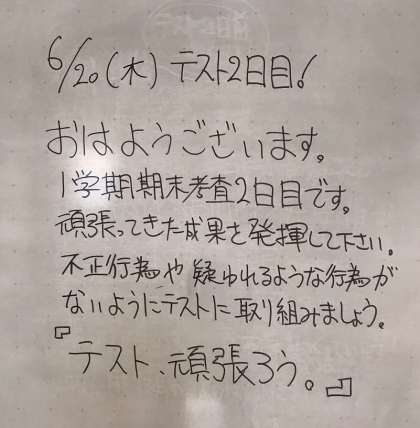 6/20(木) テスト2日目!
おはようございます。
1学期期末考査2日目です。
頑張ってきた成果を発揮して下さい。
不正行為や疑われるような行為が
ないようにテストに取り組みましょう。
『テスト、頑張ろう。』